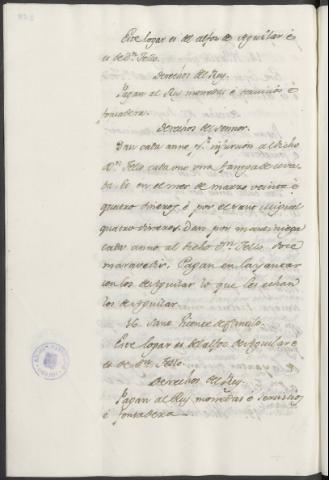 Este logar es del alfos de Aguilar é
es de Dn. Tello.
Derechos del Rey.
Pagan al Rey monedas é servicios é
fonsadera.
Derechos del Sennor.
Dan cada anno por infurcion al dicho
Dn. Tello cada uno una fanega de ceva-
da en el mes de marzo veinte é
quatro dineros é por el Sant Miguel
quatro dineros. Dan por martiniega
cada anno al dicho Dn. Tello doce
maravedis. Pagan en la yantar
con los de Aguilar lo que les echan
los de Aguilar.
36. Sant Vicente de
Este logar es del alfos de Aguilar é
es de Dn. Tello.
Derechos del Rey.
Pagan al Rey monedas é servicios
é fonsadera.